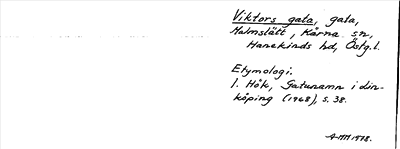 Viktors gata, gata,
Malmslätt, Kärna sn,
Hanekinds hd, Östg. l.
Etymologi.
I. Hök, Gatunamn i Lin-
köping (1968), s. 38.
A-MH 1978.